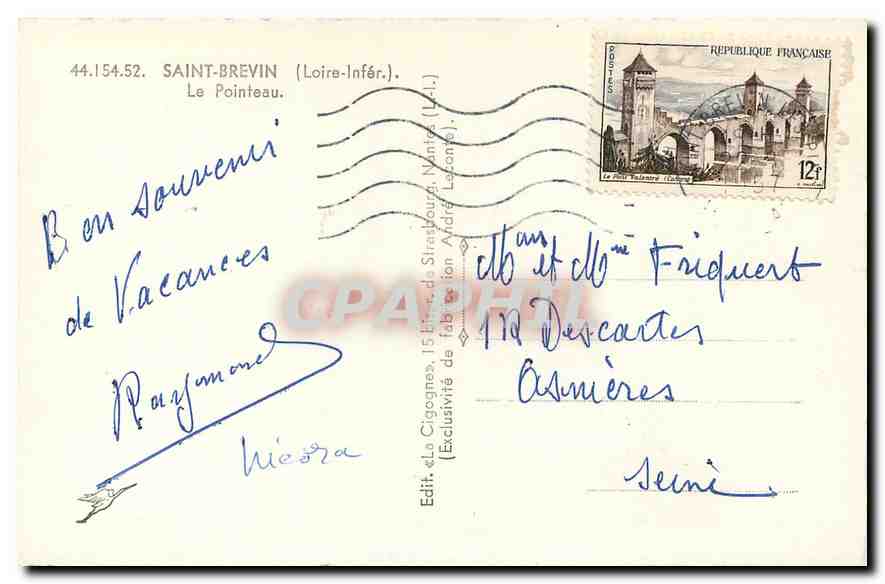 44.154.52. SAINT-BREVIN (Loire-Infér.).
Le Pointeau.
Bon souvenir
de Vacances
Raymond
Edit. «La Cigogne», 15 bis r. de Strasbourg, Nantes (L.-I.)
(Exclusivité de fabrication André Leconte).
POSTES
REPUBLIQUE FRANÇAISE
Le Pont Valentré (Cahors)
12f
et Mme Friquert
1 R Descartes
Asnières
Seine
CPAPHIL